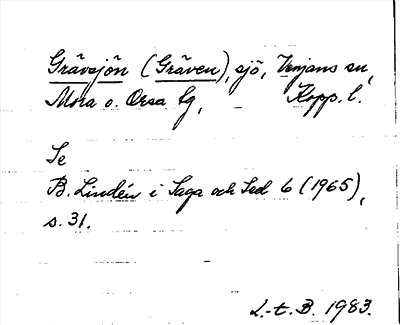 Gråvsjön (Gråven), sjö, Venjans sn,
Mora o. Orsa tg, Kopp. l.
Se
B. Lindén i Saga och Sed 6 (1965),
s. 31.
L.-t. B. 1983.